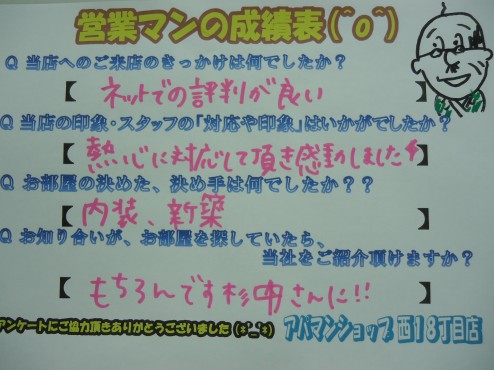 営業マンの成績表(^o^)
Q 当店へのご来店のきっかけは何でしたか？
【 ネットでの評判が良い 】
Q 当店の印象・スタッフの「対応や印象」はいかがでしたか？
【 熱心に対応して頂き感動しました 】
Q お部屋の決めた、決め手は何でしたか？？
【 内装、新築 】
Q お知り合いが、お部屋を探していたら、
当社をご紹介頂けますか？
【 もちろんです杉内さんに!! 】
アンケートにご協力頂きありがとうございました
アパマンショップ 西18丁目店